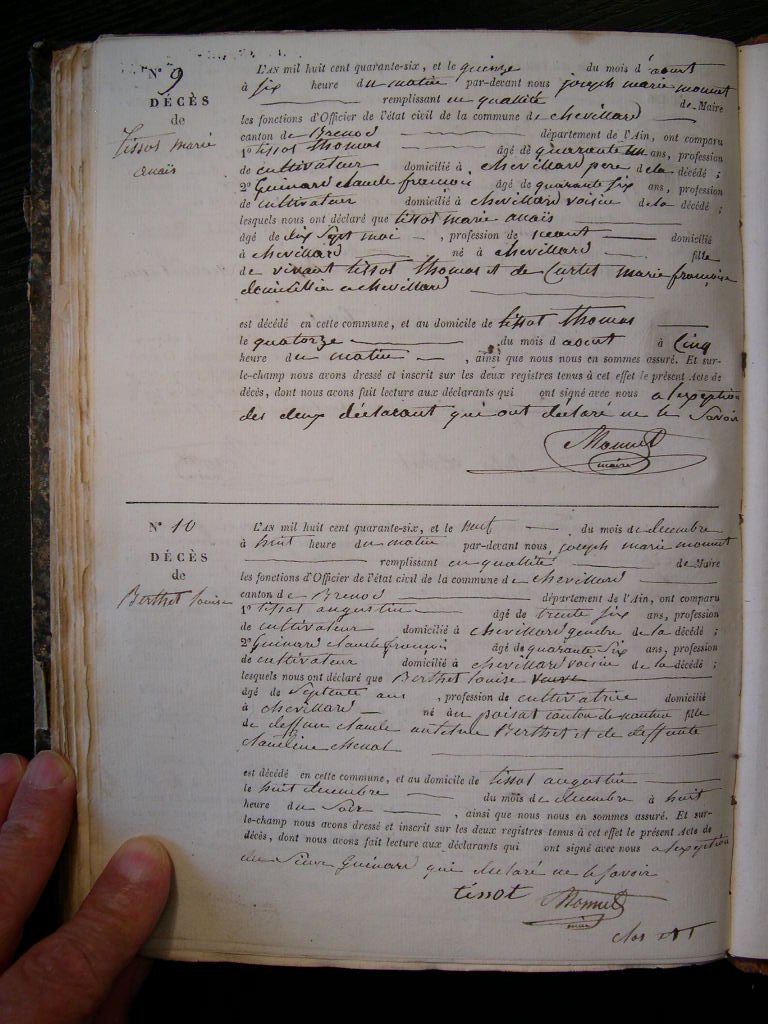 N° 9
DÉCÈS
de
tissot marie
anaïs
L'AN mil huit cent quarante-six, et le quinze du mois d'aout
à six heure du matin par-devant nous joseph marie monnet
remplissant en qualité de Maire
les fonctions d'Officier de l'état civil de la commune de chevillard
canton de Brenod département de l'Ain, ont comparu
1° tissot thomas âgé de quarante un ans, profession
de cultivateur domicilié à chevillard pere de la décédé ;
2° Guinard claude françois âgé de quarante six ans, profession
de cultivateur domicilié à chevillard voisin de la décédé ;
lesquels nous ont déclaré que tissot marie anaïs
âgé de dix sept moi , profession de neant domicilié
à chevillard né à chevillard fille
de vivant tissot thomas et de Curtet marie françoise
domicilliés a chevillard
est décédé en cette commune, et au domicile de tissot thomas
le quatorze du mois d'aout à Cinq
heure du matin , ainsi que nous nous en sommes assuré. Et sur-
le-champ nous avons dressé et inscrit sur les deux registres tenus à cet effet le présent Acte de
décès, dont nous avons fait lecture aux déclarants qui ont signé avec nous a lexeption
des deux déclarant qui ont declaré ne le savoir
Monnet
maire
N° 10
DÉCÈS
de
Berthet louise
L'AN mil huit cent quarante-six, et le neuf du mois de decembre
à huit heure du matin par-devant nous joseph marie monnet
remplissant en qualité de Maire
les fonctions d'Officier de l'état civil de la commune de chevillard
canton de Brenod département de l'Ain, ont comparu
1° tissot augustin âgé de trente six ans, profession
de cultivateur domicilié à chevillard gendre de la décédé ;
2° Guinard claude françois âgé de quarante six ans, profession
de cultivateur domicilié à chevillard voisin de la décédé ;
lesquels nous ont déclaré que Berthet louise veuve
âgé de septente ans , profession de cultivatrice domicilié
à chevillard né au poisat canton de nantua fille
de deffun claude antelme Berthet et de deffunte
claudine
est décédé en cette commune, et au domicile de tissot augustin
le huit decembre du mois de decembre à huit
heure du soir , ainsi que nous nous en sommes assuré. Et sur-
le-champ nous avons dressé et inscrit sur les deux registres tenus à cet effet le présent Acte de
décès, dont nous avons fait lecture aux déclarants qui ont signé avec nous a lexeption
du sieur Guinard qui declaré ne le savoir
tissot Monnet
maire
clos